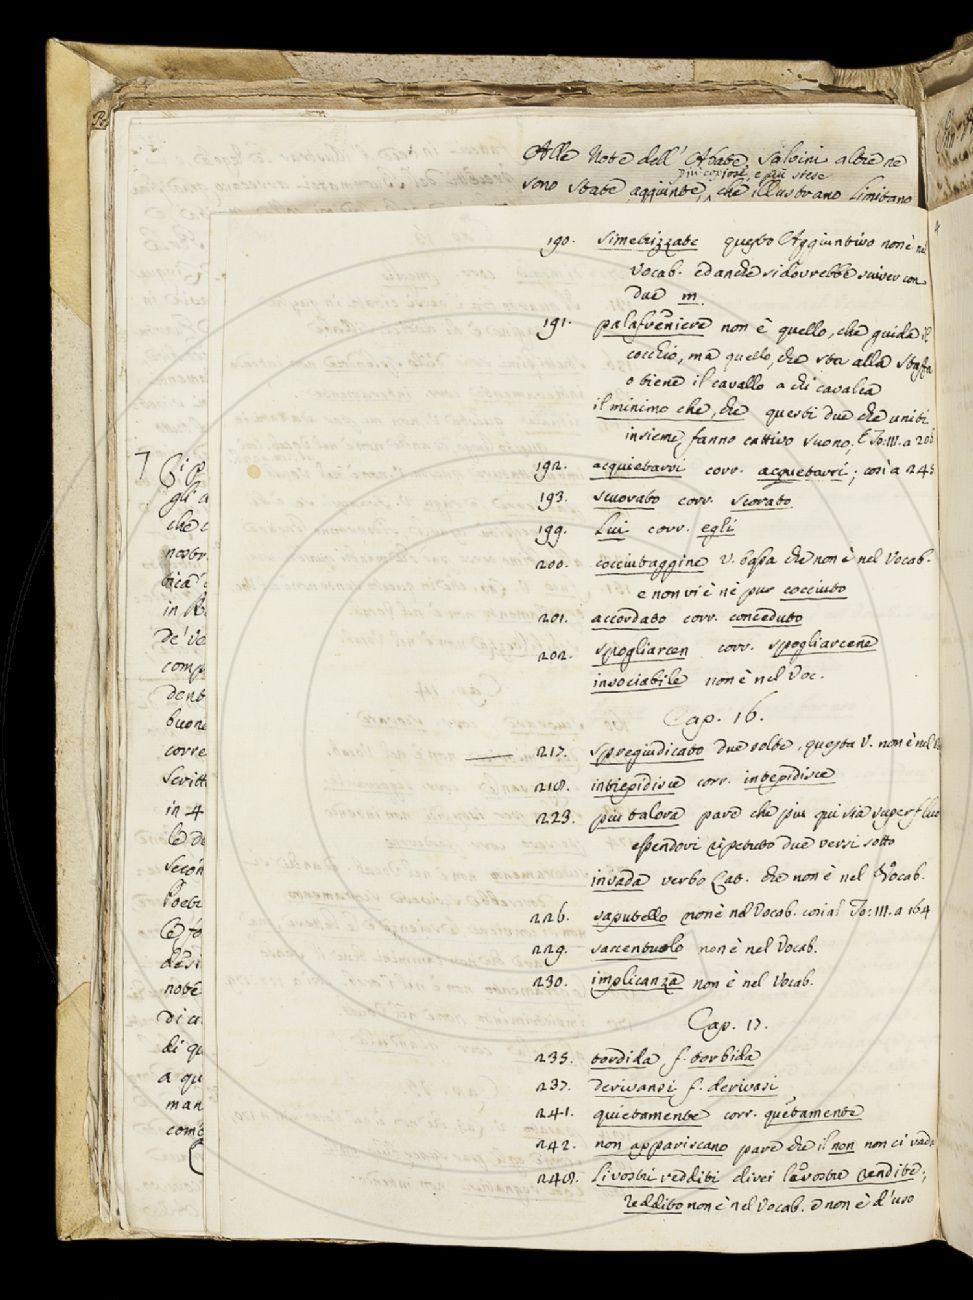 Alle Note dell'Abate Salvini altre ne
più copiose, e più stese
sono state aggiunte, che illustrano l'imitano
4
190. simetrizzate questo Aggiuntivo non è nel
Vocab. ed anche si dovrebbe scriver con
due m.
191. palafreniere non è quello, che guida il
cocchio, ma quello, che sta alla staffa
o tiene il cavallo a chi cavalca
il minimo che, che questi due che uniti
insieme, fanno cattivo suono; e To: III. a 206
192. acquietarsi corr. acquetarsi; così a 245
193. scuorato corr. scorato
199. Lui corr. egli
200. cocciutaggine V. bassa che non è nel Vocab.
e non vi è nè pur cocciuto
201. accordato corr. conceduto
202. spogliarcen corr. spogliarcene
insociabile non è nel Voc.
Cap. 16.
217. spregiudicato due volte, questa V. non è nel
218. intiepidisce corr. intepidisce
223. più talora pare che più qui stia superfluo
essendovi ripetuto due versi sotto
invada verbo Lat. che non è nel Vocab.
226. saputello non è nel Vocab. così a To: III. a 164
229. saccentuolo non è nel Vocab.
230. implicanza non è nel Vocab.
Cap. 17.
235. tordida f. torbida
237. derivansi f. derivasi
241. quietamente corr. quetamente
242. non appariscano pare che il non non ci vada
248. li vostri redditi direi le vostre rendite;
reddito non è nel Vocab. e non è d'uso
gli a
che c
nostr
tica
in
De' Ve
comp
dent
buone
corre
scritt
in 4
le de
secon
Poet
desi
note
di cu
di qu
a qu
man
come